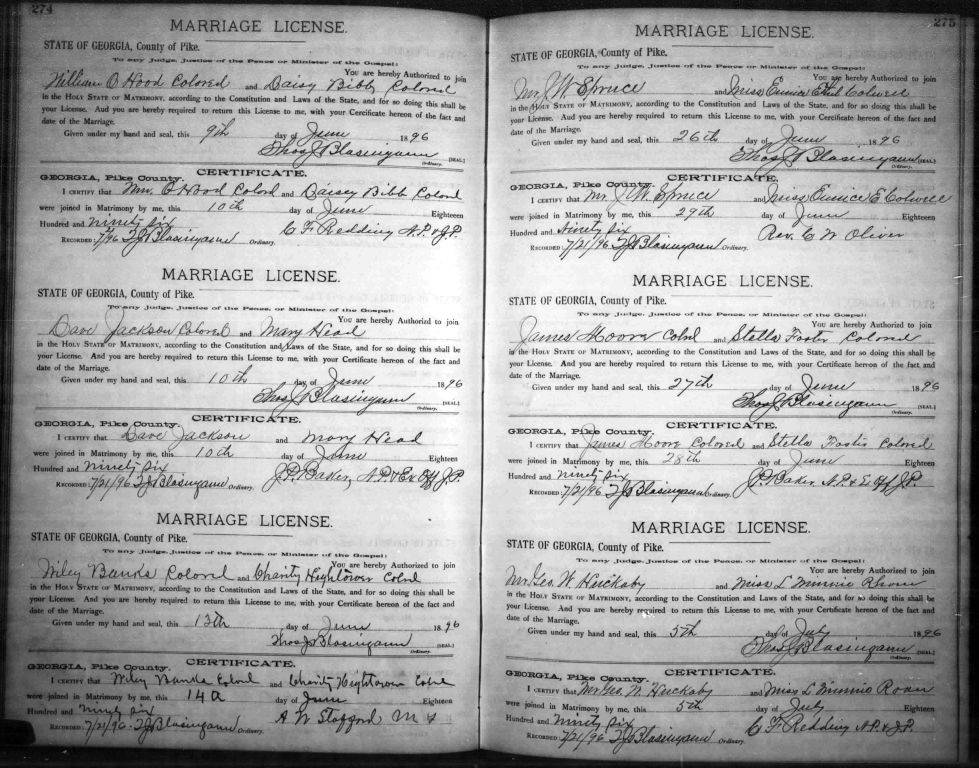 274
MARRIAGE LICENSE.
STATE OF GEORGIA, County of Pike.
To any Judge, Justice of the Peace or Minister of the Gospel:
You are hereby Authorized to join
William O Hood Colored and Daisy Bibb Colored
in the HOLY STATE OF MATRIMONY, according to the Constitution and Laws of the State, and for so doing this shall be
your License. And you are hereby required to return this License to me, with your Certificate hereon of the fact and
date of the Marriage.
Given under my hand and seal, this 9th day of June 1896
Thos J Blasingame [SEAL.]
Ordinary.
CERTIFICATE.
GEORGIA, Pike County.
I CERTIFY that Wm. O Hood Colord and Daisey Bibb Colord
were joined in Matrimony by me, this 10th day of June Eighteen
Hundred and Ninety Six
C F Redding N.P. & J.P.
RECORDED: 7/96 T J Blasingame Ordinary.
MARRIAGE LICENSE.
STATE OF GEORGIA, County of Pike.
To any Judge, Justice of the Peace, or Minister of the Gospel:
You are hereby Authorized to join
Dave Jackson Colored and Mary Head
in the HOLY STATE OF MATRIMONY, according to the Constitution and Laws of the State, and for so doing this shall be
your License. And you are hereby required to return this License to me, with your Certificate hereon of the fact and
date of the Marriage.
Given under my hand and seal, this 10th day of June 1896
Thos J Blasingame [SEAL.]
Ordinary.
CERTIFICATE.
GEORGIA, Pike County.
I CERTIFY that Dave Jackson and Mary Head
were joined in Matrimony by me, this 10th day of June Eighteen
Hundred and Ninety Six
J. P. Baker, N.P. & Ex Off J.P.
RECORDED: 7/21/96 T J Blasingame Ordinary.
MARRIAGE LICENSE.
STATE OF GEORGIA, County of Pike.
To any Judge, Justice of the Peace, or Minister of the Gospel:
You are hereby Authorized to join
Wiley Banks Colored and Charity Hightower Colrd
in the HOLY STATE OF MATRIMONY, according to the Constitution and Laws of the State, and for so doing this shall be
your License. And you are hereby required to return this License to me, with your Certificate hereon of the fact and
date of the Marriage.
Given under my hand and seal, this 13th day of June 1896
Thos J Blasingame [SEAL.]
Ordinary.
CERTIFICATE.
GEORGIA, Pike County.
I CERTIFY that Wiley Banks Colord and Charity Hightower Colrd
were joined in Matrimony by me, this 14 day of June Eighteen
Hundred and Ninety Six
A W Stafford M
RECORDED: 7/21/96 T J Blasingame Ordinary.
275
MARRIAGE LICENSE.
STATE OF GEORGIA, County of Pike.
To any Judge, Justice of the Peace or Minister of the Gospel:
You are hereby Authorized to join
Mr J W Spruce and Miss Eunice Ethel Colwell
in the HOLY STATE OF MATRIMONY, according to the Constitution and Laws of the State, and for so doing this shall be
your License. And you are hereby required to return this License to me, with your Certificate hereon of the fact and
date of the Marriage.
Given under my hand and seal, this 26th day of June 1896
Thos J Blasingame [SEAL.]
Ordinary.
CERTIFICATE.
GEORGIA, Pike County.
I certify that Mr J W Spruce and Miss Eunice E Colwell
were joined in Matrimony by me, this 29th day of June Eighteen
Hundred and Ninety Six
Rev. C W Oliver
RECORDED: 7/21/96 T J Blasingame Ordinary.
MARRIAGE LICENSE.
STATE OF GEORGIA, County of Pike.
To any Judge, Justice of the Peace, or Minister of the Gospel:
You are hereby Authorized to join
James Moore Colrd and Stella Foster Colored
in the HOLY STATE OF MATRIMONY, according to the Constitution and Laws of the State, and for so doing this shall be
your License. And you are hereby required to return this License to me, with your Certificate hereon of the fact and
date of the Marriage.
Given under my hand and seal, this 27th day of June 1896
Thos J Blasingame [SEAL.]
Ordinary.
CERTIFICATE.
GEORGIA, Pike County.
I certify that James Moore Colored and Stella Foster Colored
were joined in Matrimony by me, this 28th day of June Eighteen
Hundred and Ninety Six
J. P. Baker N.P. & E. Off J.P.
RECORDED: 7/21/96 T J Blasingame Ordinary.
MARRIAGE LICENSE.
STATE OF GEORGIA, County of Pike.
To any Judge, Justice of the Peace, or Minister of the Gospel:
You are hereby Authorized to join
Mr Geo. W Huckaby and Miss L Minnie Roan
in the HOLY STATE OF MATRIMONY, according to the Constitution and Laws of the State, and for so doing this shall be
your License. And you are hereby required to return this License to me, with your Certificate hereon of the fact and
date of the Marriage.
Given under my hand and seal, this 5th day of July 1896
Thos J Blasingame [SEAL.]
Ordinary.
CERTIFICATE.
GEORGIA, Pike County.
I certify that Mr Geo. W. Huckaby and Miss L Minnie Roan
were joined in Matrimony by me, this 5th day of July Eighteen
Hundred and Ninety Six
C F Redding N.P. & J.P.
RECORDED: 7/21/96 T J Blasingame Ordinary.